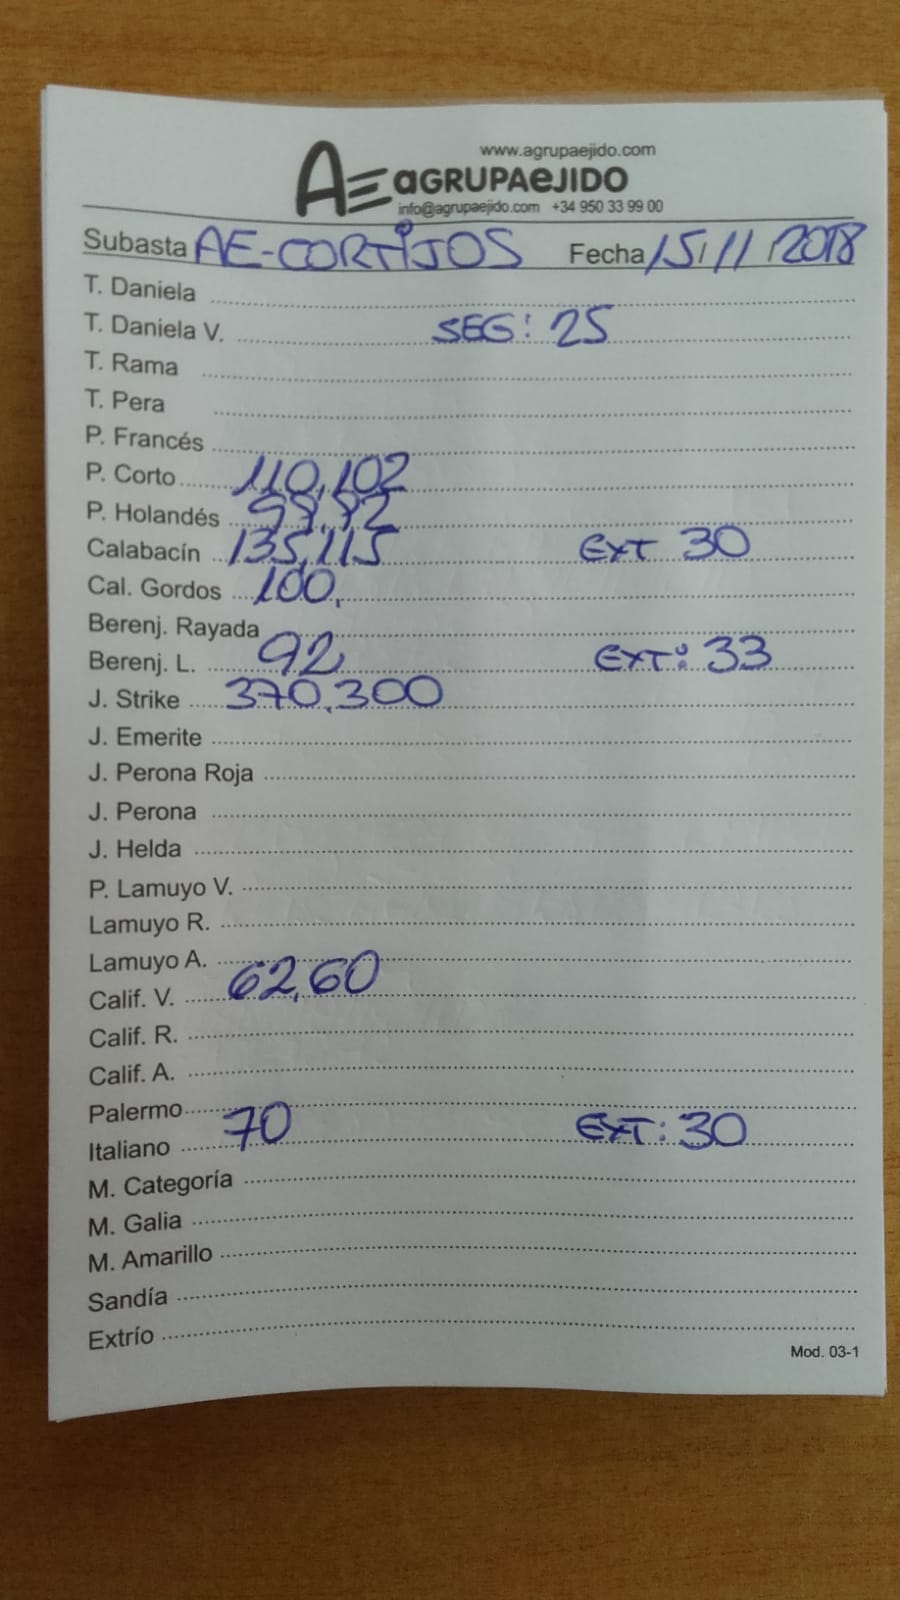 www.agrupaejido.com
AE aGRUPAeJIDO
info@agrupaejido.com +34 950 33 99 00
Subasta AE-CORTIJOS Fecha 15/11/2018
T. Daniela
T. Daniela V. SEG: 25
T. Rama
T. Pera
P. Francés
P. Corto 110,102
P. Holandés 99,92
Calabacín 135,115 EXT 30
Cal. Gordos 100,
Berenj. Rayada
Berenj. L. 92 EXT: 33
J. Strike 370,300
J. Emerite
J. Perona Roja
J. Perona
J. Helda
P. Lamuyo V.
Lamuyo R.
Lamuyo A.
Calif. V. 62,60
Calif. R.
Calif. A.
Palermo
Italiano 70 EXT: 30
M. Categoría
M. Galia
M. Amarillo
Sandía
Extrío
Mod. 03-1